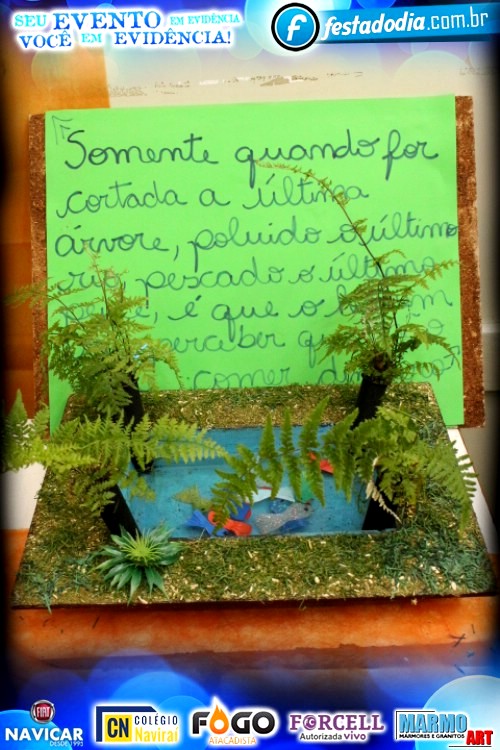 SEU EVENTO EM EVIDÊNCIA
VOCÊ EM EVIDÊNCIA!
f festadodia.com.br
Somente quando for
cortada a última
árvore, poluido o último
rio, pescado o último
peixe, é que o
perceber
comer
FIAT
NAVICAR
DESDE 1993
CN COLÉGIO
Naviraí
FOGO
ATACADISTA
FORCELL
Autorizada vivo
MARMO
MÁRMORES E GRANITOS ART